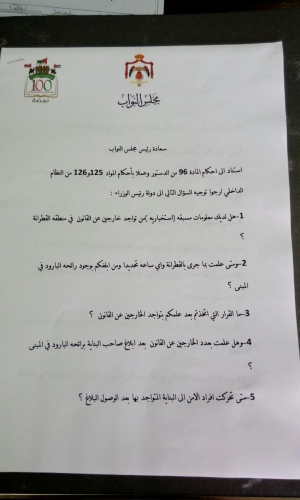 100
مجلس النواب
سعادة رئيس مجلس النواب
استناد الى احكام المادة 96 من الدستور وعملا بأحكام المواد 125و126 من النظام
الداخلي ارجوا توجيه السؤال التالي الى دولة رئيس الوزراء :
1-هل لديك معلومات مسبقه (استخباريه) بمن تواجد خارجين عن القانون في منطقه القطرانة
؟
2-ومتى علمت بما جرى بالقطرانة واي ساعه تحديدا ومن ابلغكم بوجود رائحه البارود في
المبنى ؟
3-ما القرار التي اتخذتم بعد علمكم بتواجد الخارجين عن القانون ؟
4-وهل علمت بعدد الخارجين عن القانون بعد ابلاغ صاحب البناية برائحه البارود في المبنى
؟
5-متى تحركت افراد الامن الى البناية المتواجد بها بعد الوصول البلاغ ؟